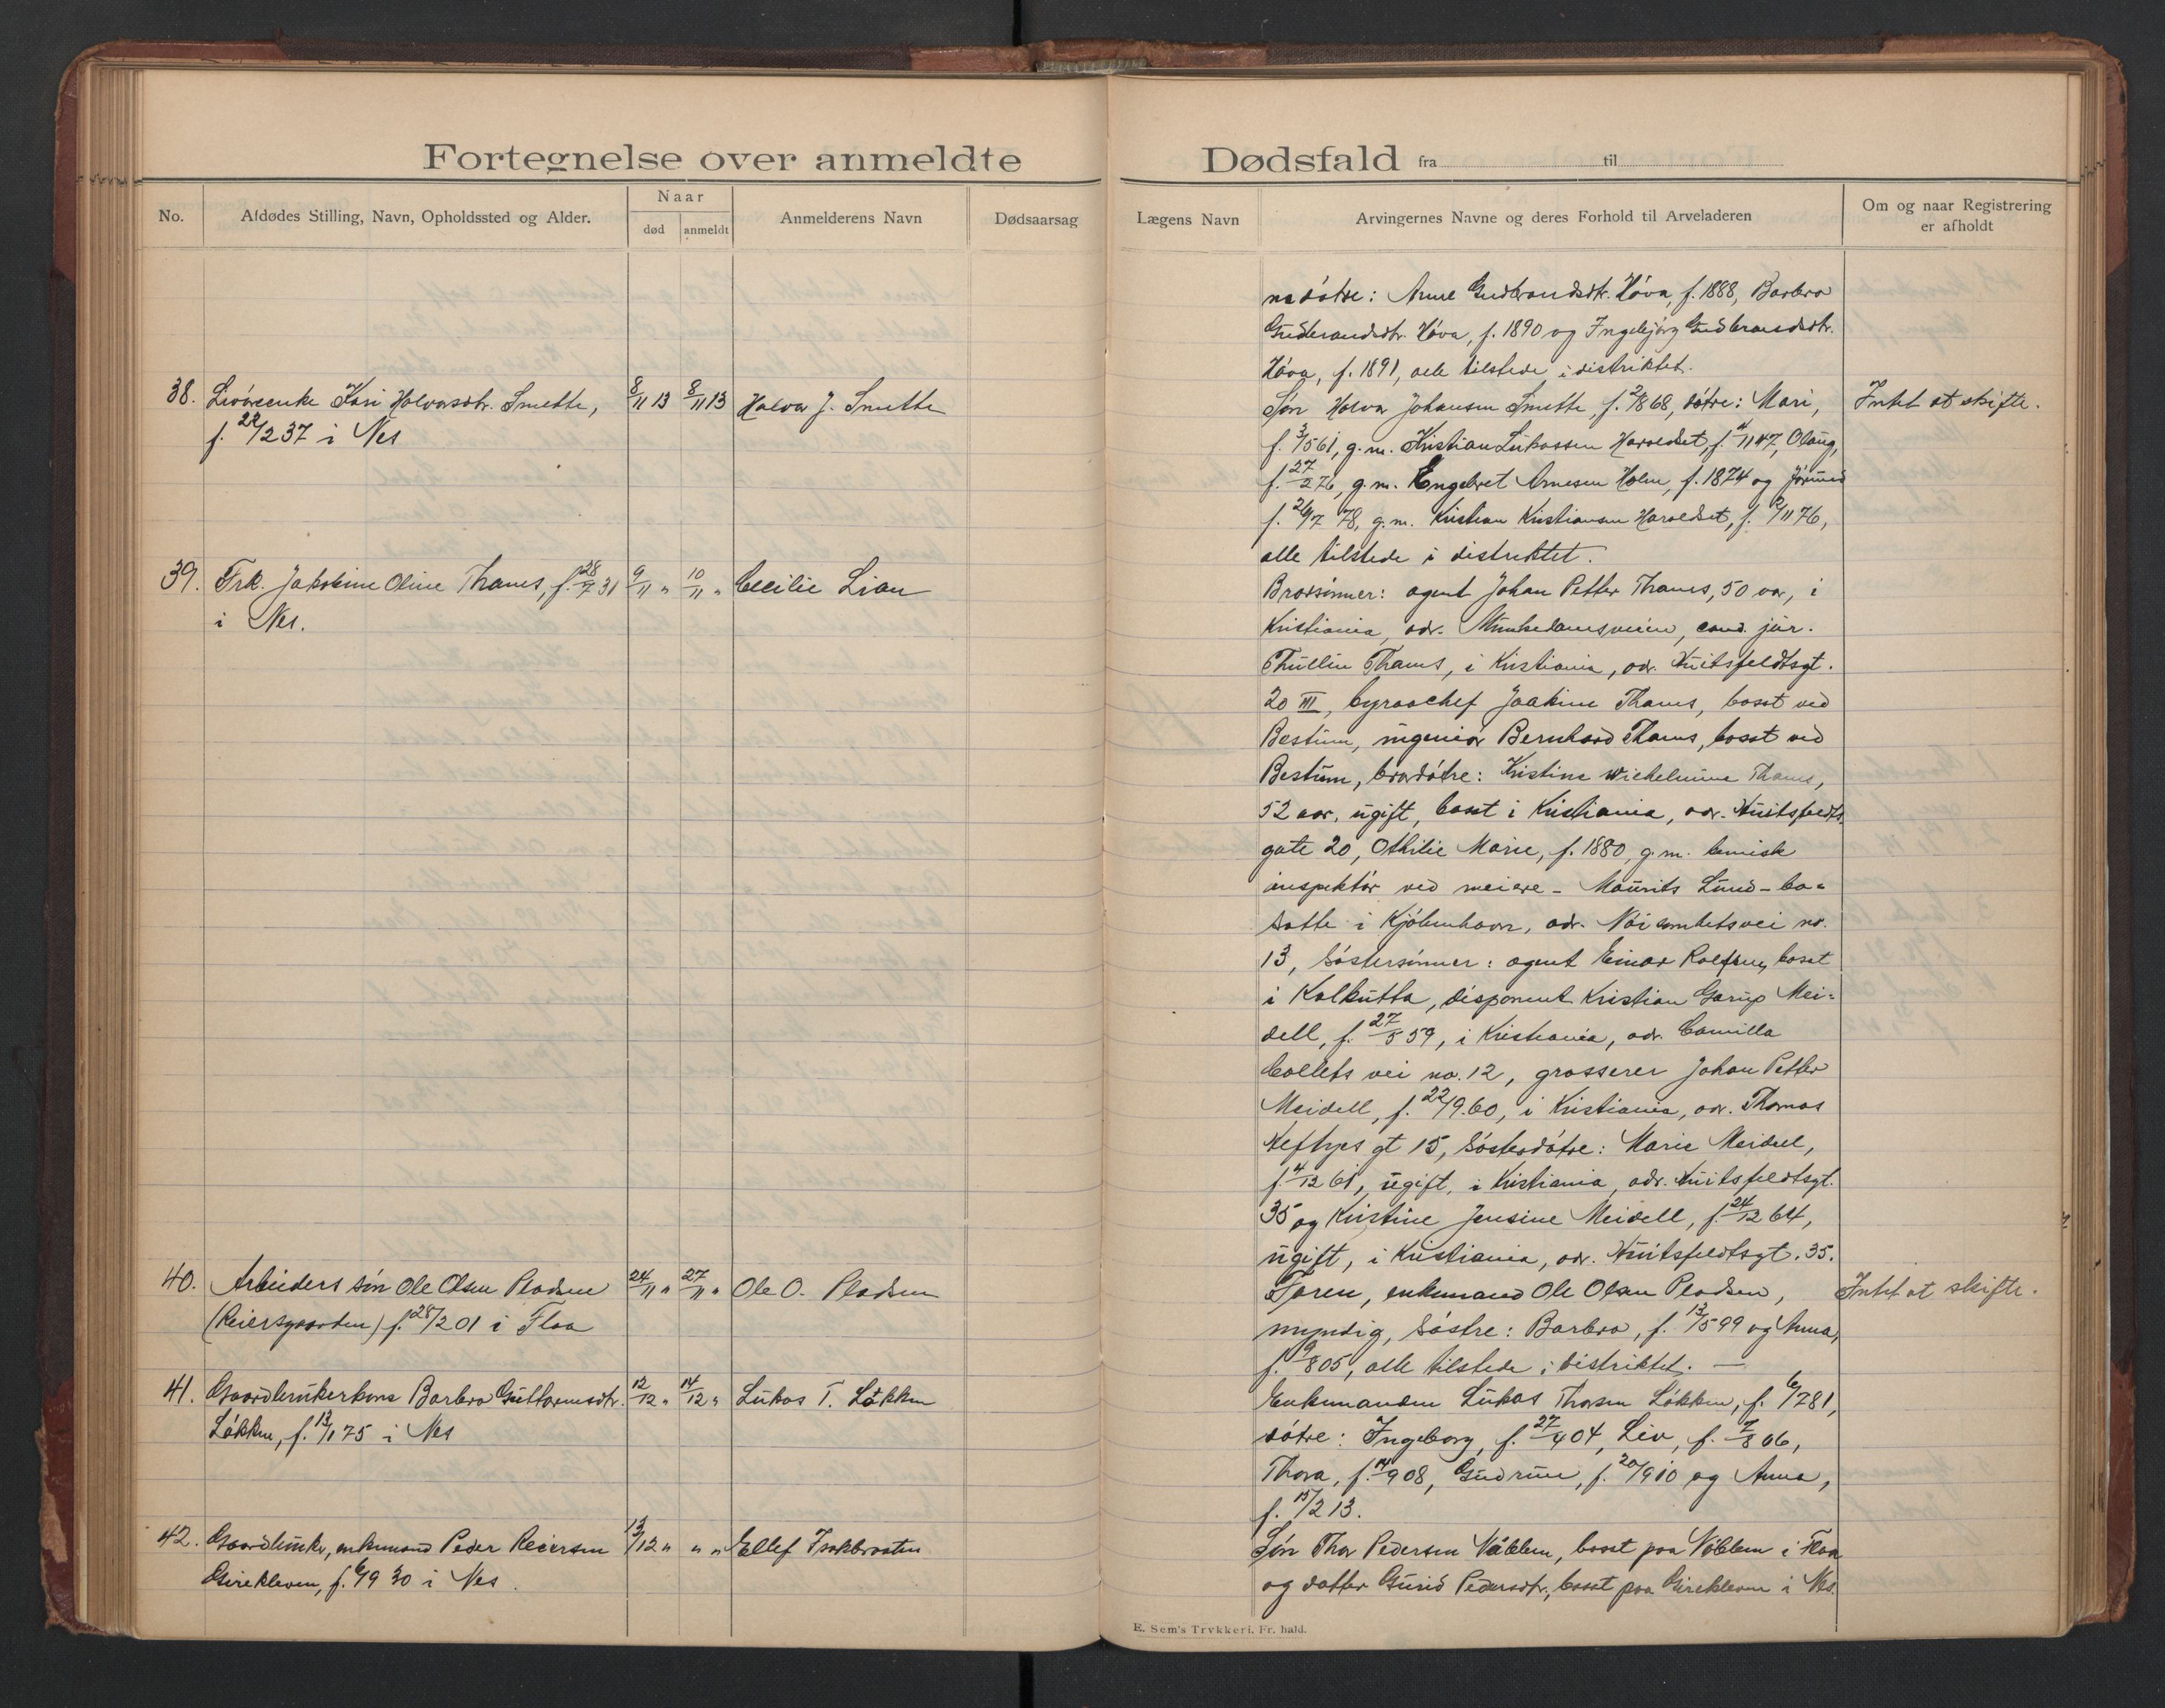 Fortegnelse over anmeldte Dødsfald fra til
No.
Afdødes Stilling, Navn, Opholdssted og Alder.
Naar
død anmeldt
Anmelderens Navn
Dødsaarsag
Lægens Navn
Arvingernes Navne og deres Forhold til Arveladeren
Om og naar Registrering
er afholdt
nedótre: Anne Gudbrandsdtr. Hóva, f. 1888, Barbro
Gudbrandsdtr. Hóva, f. 1890 og Ingebjórg Gudbrandsdtr.
Hóva, f. 1891, alle tilstede i distriktet.
38. Kari Halvorsdtr. Smette, 8/11 13 8/11 13 Halvor J. Smette
f. 22/2 37 i Nes
Són Halvor Johansen Smette, f. 2/1 868, dótre: Mari,
f. 3/5 61, g.m. Kristian Lukassen Haroldset, f. 4/11 47, Olaug,
f. 27/2 76, g.m. Engebret Arnesen Holm, f. 1874 og Jórund
f. 26/7 78, g.m. Kristian Kristiansen Haroldset, f. 2/11 76,
alle tilstede i distriktet.
Intet at skifte.
39. Frk. Jakobine Oline Thams, f. 28/7 31 9/11 " 10/11 " Cecilie Lian
i Nes.
Brorsónner: agent Johan Petter Thams, 50 aar, i
Kristiania, adr. Munkedamsveien, cand. jur.
Thullin Thams, i Kristiania, adr. Huitsfeldtsgt.
20 III, byraachef Joakim Thams, bosat ved
Bestum, ingeniór Bernhard Thams, bosat ved
Bestum, brordótre: Kristine Wilhelmine Thams,
52 aar, ugift, bosat i Kristiania, adr. Huitsfeldts-
gate 20, Othilie Marie, f. 1880, g.m. kemisk
inspektór ved meiere - Maurits Lund - bo=
satte i Kjóbenhavn, adr. no.
13, sóstersónner: agent Einar Rolfsen, bosat
i Kalkutta, disponent Kristian Garup Mei=
dell, f. 27/5 59, i Kristiania, adr. Camilla
Collets vei no. 12, grosserer Johan Petter
Meidell, f. 22/9 60, i Kristiania, adr. Thomas
Heftyes gt 15, sósterdótre: Marie Meidell,
f. 4/12 61, ugift, i Kristiania, adr. Huitsfeldtsgt.
35 og Kristine Jensine Meidell, f. 24/12 64,
ugift, i Kristiania, adr. Huitsfeldtsgt. 35.
40. Arbeiders són Ole Olsen Pladsen 24/11 " 27/11 " Ole O. Pladsen
(Reiersgaarden) f. 28/2 01 i Flaa
Faren, enkemand Ole Olsen Pladsen,
myndig, sóstre: Barbro, f. 13/5 99 og Anna,
f. 9/8 05, alle tilstede i distriktet. —
Intet at skifte.
41. Gaardbrukerkone Barbro Guttormsdtr. 12/12 " 14/12 " Lukas T. Løkken
Lókken, f. 13/1 75 i Nes
Enkemanden Lukas Thorsen Lókken, f. 6/7 81,
dótre: Ingeborg, f. 27/4 04, Liv, f. 7/8 06,
Thora, f. 14/9 08, Gudrun, f. 20/9 10 og Anna,
f. 15/2 13.
42. Gaardbruker, enkemand Peder Reiersen 13/12 " " " Ellef Isakbraaten
Girekleven, f. 6/9 30 i Nes.
Són Thor Pedersen Vóllem, bosat paa Vóllem i Flaa
og datter Gurid Pedersdtr., bosat paa Girekleven i Nes.
E. Sem's Trykkeri, Fr. hald.